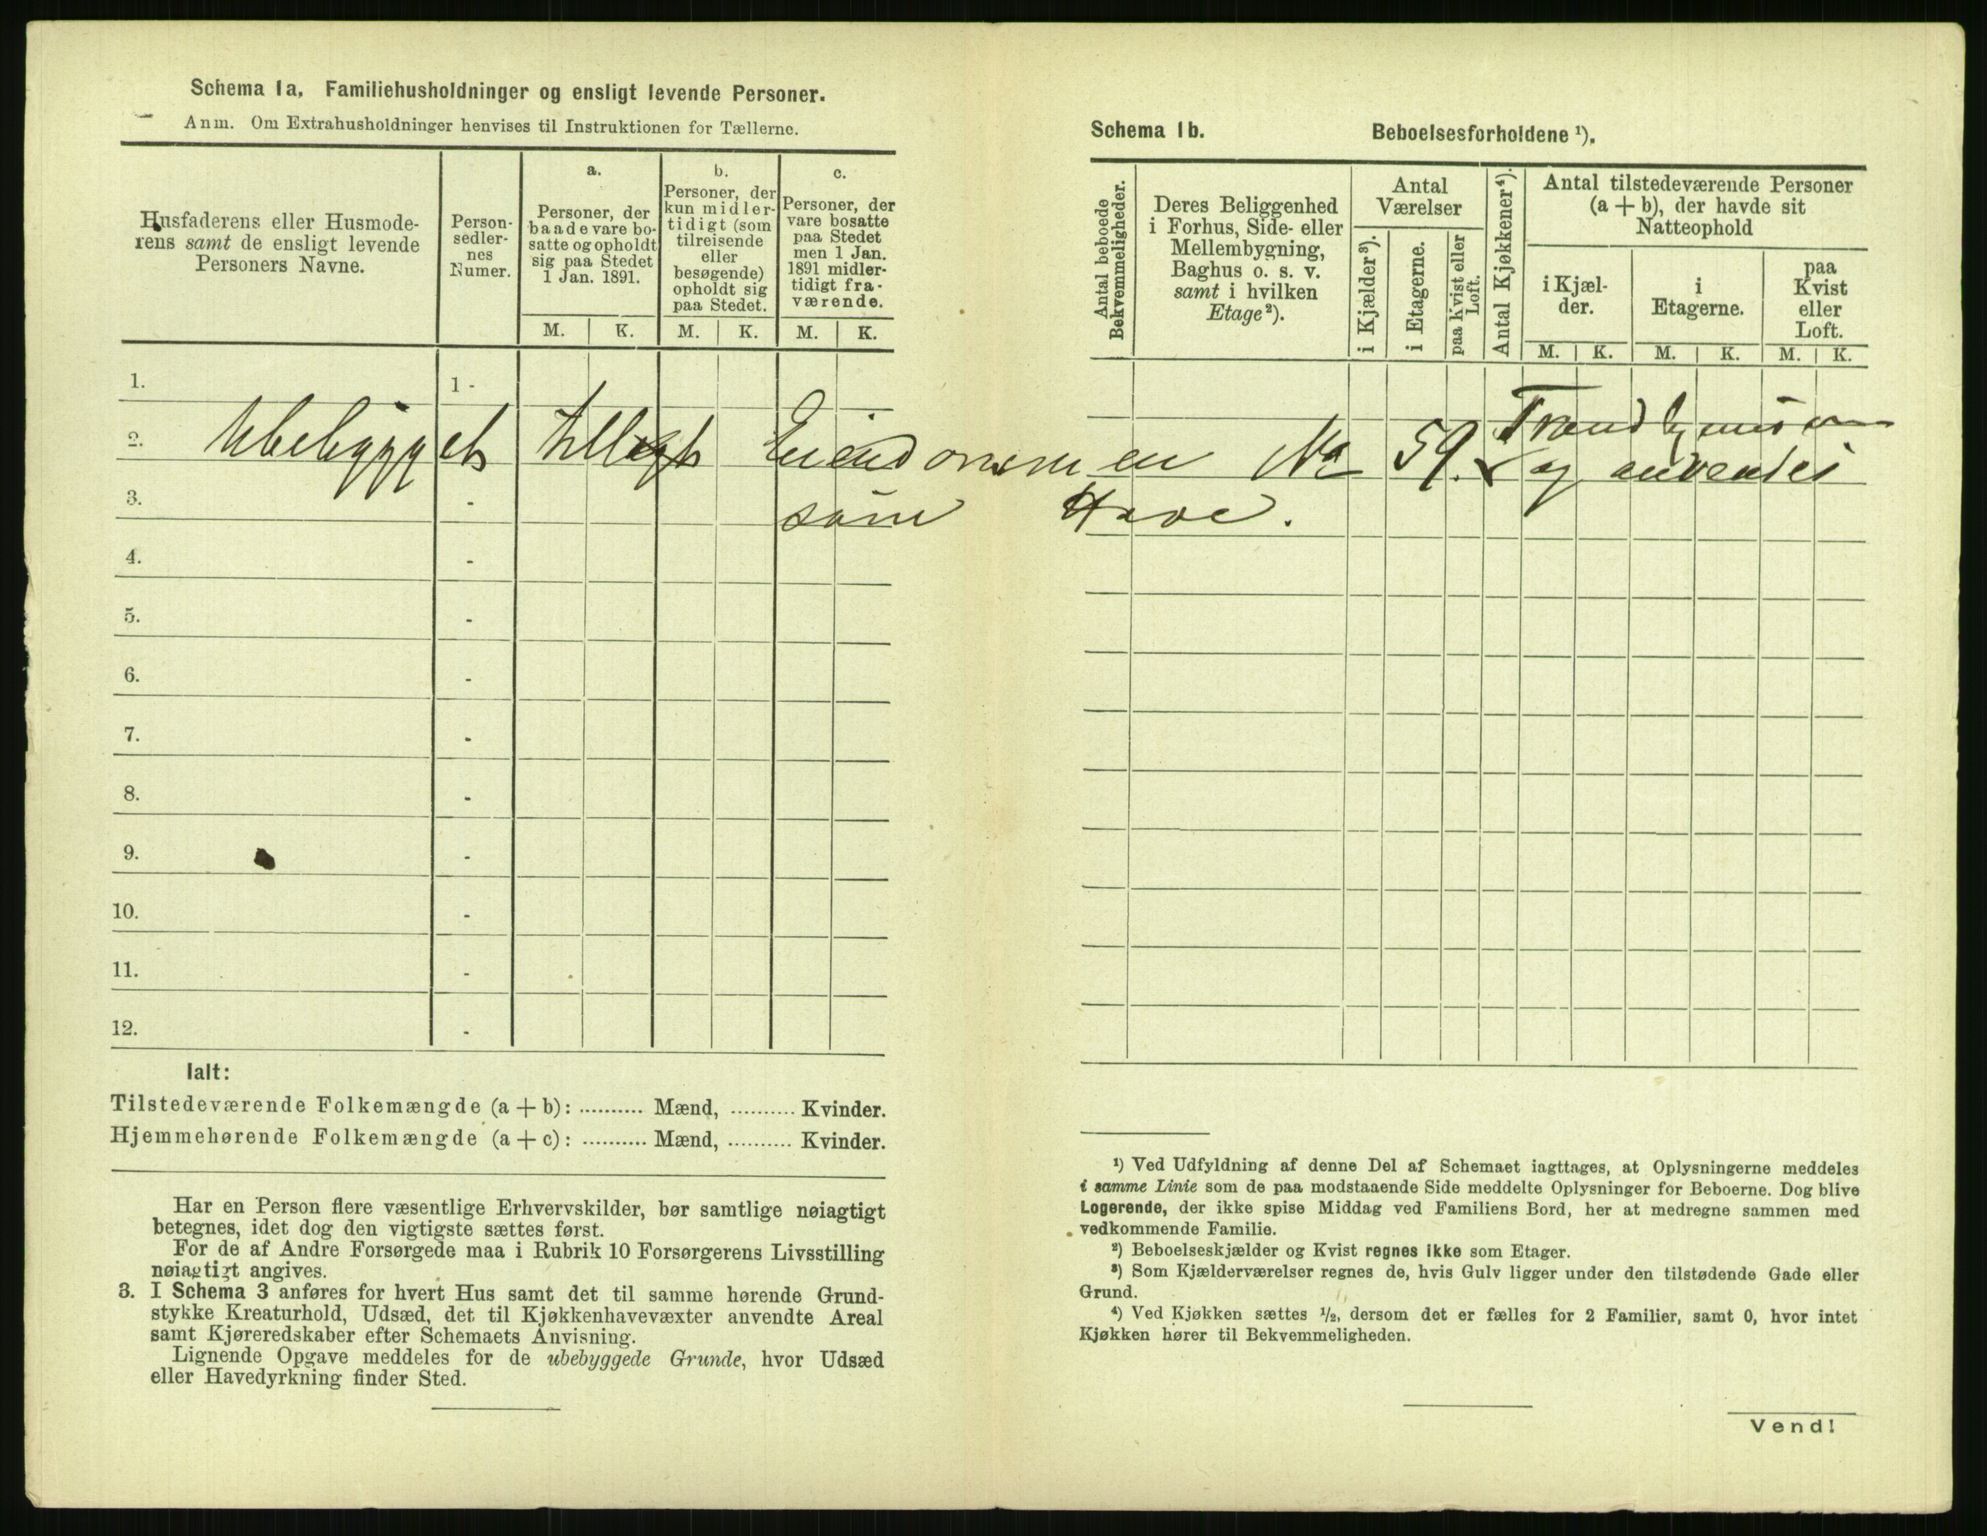 Schema 1a. Familiehusholdninger og ensligt levende Personer.
Anm. Om Extrahusholdninger henvises til Instruktionen for Tællerne.
Husfaderens eller Husmode-
rens samt de ensligt levende
Personers Navne.
Person-
sedler-
nes
Numer.
a.
Personer, der
baade vare bo-
satte og opholdt
sig paa Stedet
1 Jan. 1891.
b.
Personer, der
kun midler-
tidigt (som
tilreisende
eller
besøgende)
opholdt sig
paa Stedet.
c.
Personer, der
vare bosatte
paa Stedet
men 1 Jan.
1891 midler-
tidigt fra-
værende.
M. K. M. K. M. K.
1. 1 -
2. Ubebygget tillagt Eiendommen No 59.
3. - som Have.
4. -
5. -
6. -
7. -
8. -
9. -
10. -
11. -
12. -
Ialt:
Tilstedeværende Folkemængde (a + b): .......... Mænd, .......... Kvinder.
Hjemmehørende Folkemængde (a + c): .......... Mænd, .......... Kvinder.
Har en Person flere væsentlige Erhvervskilder, bør samtlige nøiagtigt
betegnes, idet dog den vigtigste sættes først.
For de af Andre Forsørgede maa i Rubrik 10 Forsørgerens Livsstilling
nøiagtigt angives.
3. I Schema 3 anføres for hvert Hus samt det til samme hørende Grund-
stykke Kreaturhold, Udsæd, det til Kjøkkenhavevæxter anvendte Areal
samt Kjøreredskaber efter Schemaets Anvisning.
Lignende Opgave meddeles for de ubebyggede Grunde, hvor Udsæd
eller Havedyrkning finder Sted.
Schema 1b. Beboelsesforholdene ¹).
Antal beboede
Bekvemmeligheder.
Deres Beliggenhed
i Forhus, Side- eller
Mellembygning,
Baghus o. s. v.
samt i hvilken
Etage²).
Antal
Værelser
i Kjælder³).
i Etagerne.
paa Kvist eller
Loft.
Antal Kjøkkener⁴).
Antal tilstedeværende Personer
(a + b), der havde sit
Natteophold
i Kjæl-
der.
i
Etagerne.
paa
Kvist
eller
Loft.
M. K. M. K. M. K.
og anvendes
¹) Ved Udfyldning af denne Del af Schemaet iagttages, at Oplysningerne meddeles
i samme Linie som de paa modstaaende Side meddelte Oplysninger for Beboerne. Dog blive
Logerende, der ikke spise Middag ved Familiens Bord, her at medregne sammen med
vedkommende Familie.
²) Beboelseskjælder og Kvist regnes ikke som Etager.
³) Som Kjælderværelser regnes de, hvis Gulv ligger under den tilstødende Gade eller
Grund.
⁴) Ved Kjøkken sættes ½, dersom det er fælles for 2 Familier, samt 0, hvor intet
Kjøkken hører til Bekvemmeligheden.
Vend!